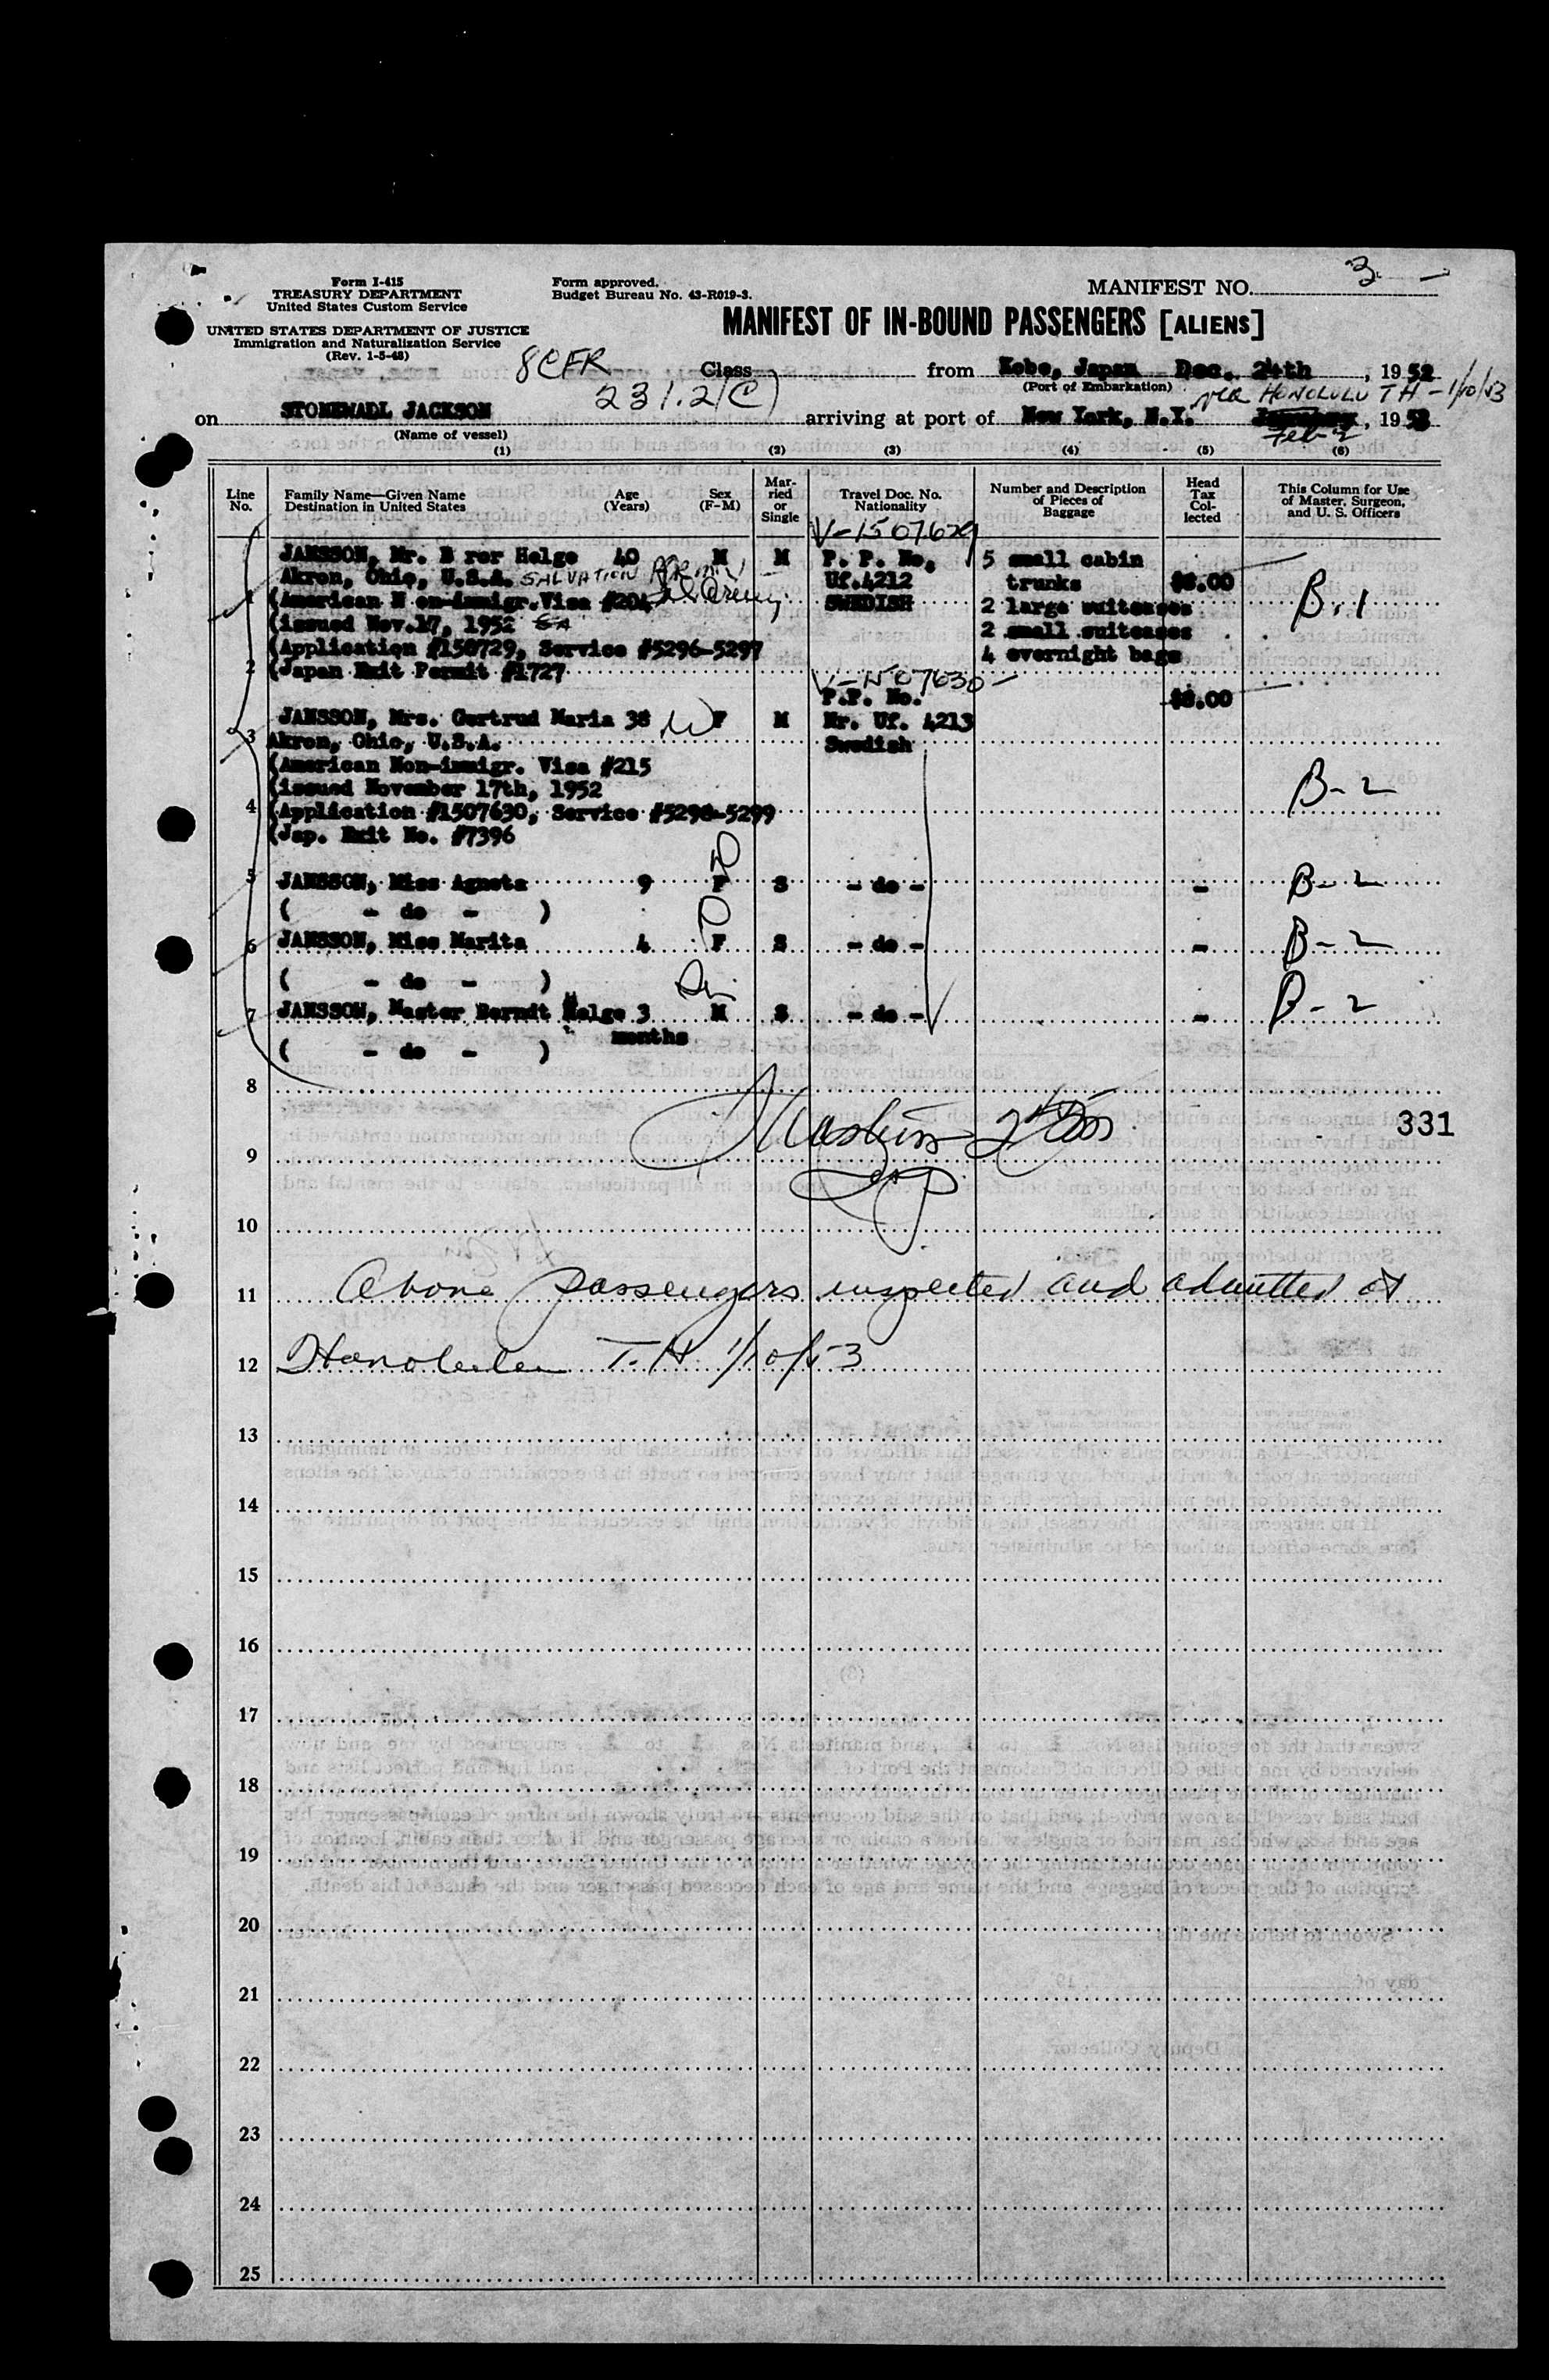 Form I-415
TREASURY DEPARTMENT
United States Custom Service
UNITED STATES DEPARTMENT OF JUSTICE
Immigration and Naturalization Service
(Rev. 1-5-48)
Form approved.
Budget Bureau No. 43-R019-3.
MANIFEST NO. 3
MANIFEST OF IN-BOUND PASSENGERS [ALIENS]
8 CFR
231.2(C)
Class from Kobe, Japan Dec. 24th, 1952
(Port of Embarkation)
via HONOLULU TH - 1/10/53
on STONEWADL JACKSON arriving at port of New York, N.Y. January, 1953
Feb 2
(Name of vessel)
(1) (2) (3) (4) (5) (6)
Line No. Family Name—Given Name Destination in United States Age (Years) Sex (F-M) Married or Single Travel Doc. No. Nationality Number and Description of Pieces of Baggage Head Tax Collected This Column for Use of Master, Surgeon, and U. S. Officers
V-1507629
JANSSON, Mr. B ror Helge 40 M M P. P. No. 5 small cabin
Akron, Ohio, U.S.A. SALVATION ARMY Uf.4212 trunks $8.00
1 (American N on-immigr.Visa #204 Sal Army SWEDISH 2 large suitcases B-1
(issued Nov.17, 1952 2 small suitcases
(Application #150729, Service #5296-5297 4 overnight bags
2 (Japan Exit Permit #1727
V-1507630
P.P. No. $8.00
JANSSON, Mrs. Gertrud Maria 38 W F M Nr. Uf. 4213
3 Akron, Ohio, U.S.A. Swedish
(American Non-immigr. Visa #215
(issued November 17th, 1952 B-2
4 (Application #1507630, Service #5298-5299
(Jap. Exit No. #7396
5 JANSSON, Miss Agneta 9 F S - do - - B-2
( - do - )
6 JANSSON, Miss Marita 4 F S - do - - B-2
( - do - )
7 JANSSON, Master Berndt Helge 3 M S - do - - B-2
months
( - do - )
8
331
9
10
11 Above passengers inspected and admitted at
12 Honolulu T.H. 1/10/53
13
14
15
16
17
18
19
20
21
22
23
24
25